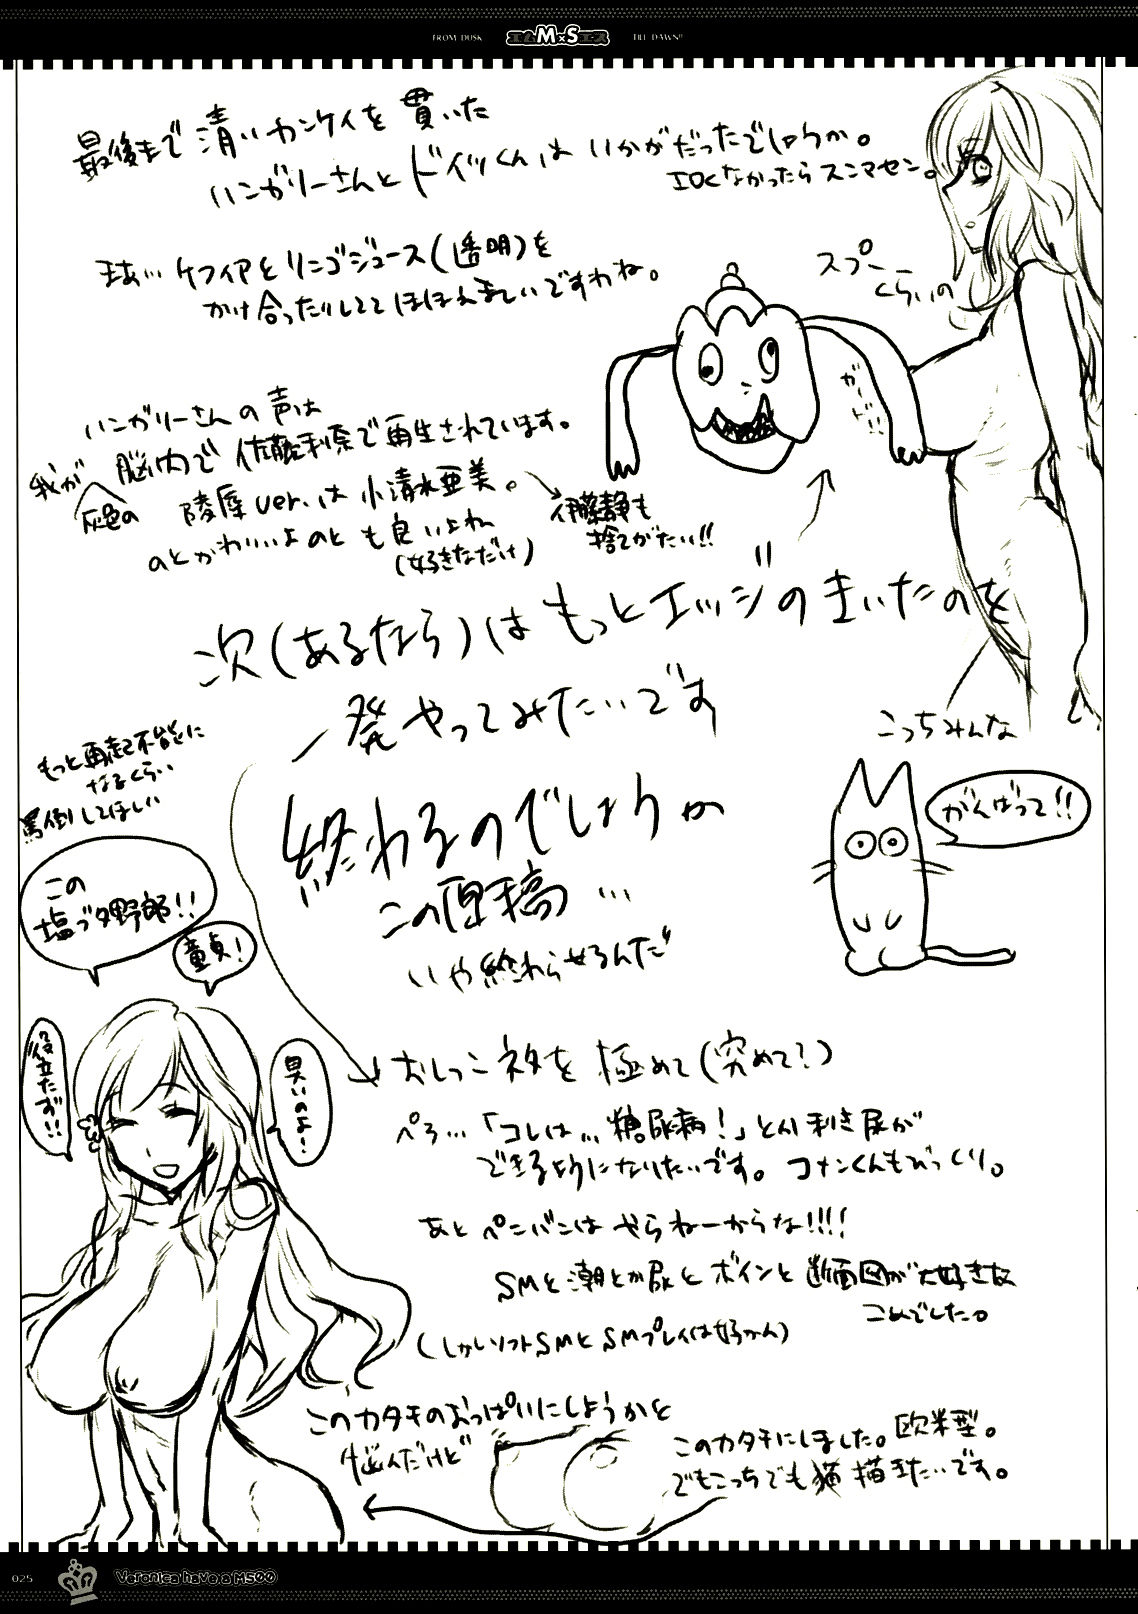 FROM DUSK エムM×Sエース TILL DAWN!!
最後まで清いカンケイを貫いた
ハンガリーさんとドイツくんは いかがだったでしょうか。
エロくなかったらスンマセン。
まあ… ケフィアとリンゴジュース(透明)を
かけ合ったりしててほほえましいですわね。
スプー
くらいの
ガイドー!!
ハンガリーさんの声は
我が灰色の脳内で佐藤利奈で再生されています。
陵辱ver.は小清水亜美。
伊藤静も
捨てがたい!!
のとかわいいよのとも良いよね
(好きなだけ)
次(あるなら)はもっとエッジのきいたのを
一発やってみたいです
こっちみんな
がんばって!!
もっと再起不能に
なるくらい
罵倒してほしい
この
塩ブタ野郎!!
童貞!
役立たず!!
臭いのよ!
終わるのでしょうか
この原稿…
いや終わらせるんだ
おしっこネタを極めて(究めて?)
ぺろ…「コレは…糖尿病!」とか利き尿が
できるようになりたいです。コナンくんもびっくり。
あとペニバンはやらねーからな!!!!
SMと潮とか尿とボインと断面図が大好きな
こめでした。
(しかしソフトSMとSMプレイは好かん)
このカタチのおっぱいにしようかと
悩んだけど
このカタチにしました。欧米型。
でもこっちでも猫描きたいです。
025
Veronica have a M500